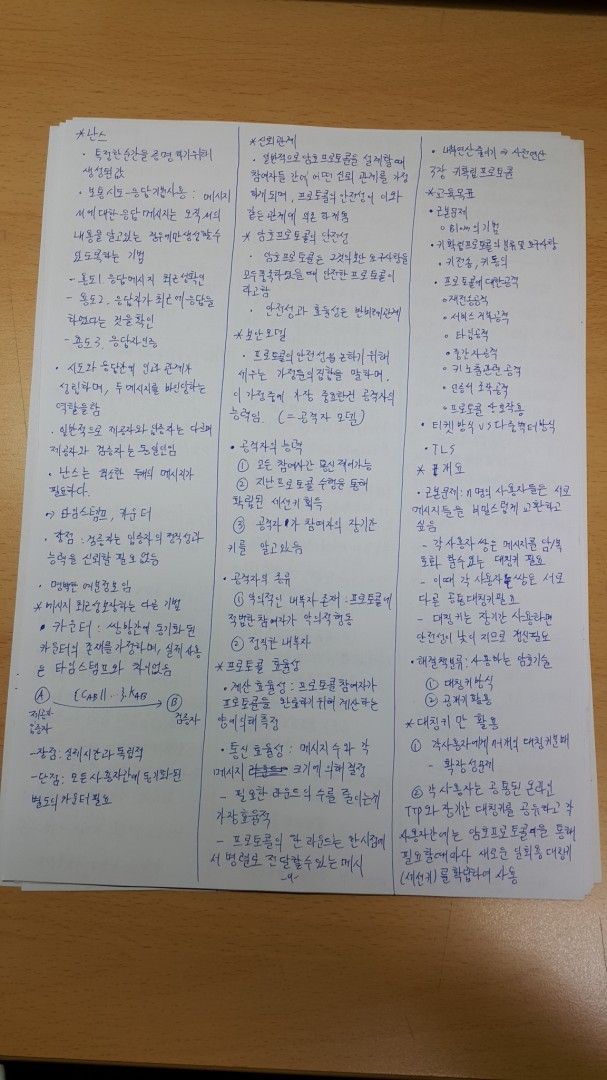 *난스
• 특정한 순간을 증명하기 위해
생성된 값
• 보통 시도-응답 기법 사용 : 메시지
에 대한 응답 메시지는 오직
내용을 알고있는 경우에만 생성할 수
있도록하는 기법
- 용도1. 응답메시지 최근성확인
- 용도2. 응답자가 최근에 응답을
하였다는 것을 확인
- 용도3. 응답자인증
• 시도와 응답간에 인과 관계가
성립하며, 두 메시지를 바인딩하는
역할을함
• 일반적으로 제공자와 입증자는 다르며
제공자와 검증자는 동일인임
• 난스는 최소한 두개의 메시지가
필요하다.
→ 타임스탬프, 카운터
• 장점 : 검증자는 입증자의 정직성과
능력을 신뢰할 필요 없음
• 명백한 여분정보임
*메시지 최근성보장하는 다른 기법
• 카운터 : 쌍방간에 동기화 된
카운터의 존재를 가정하며, 실제 사용
은 타임스탬프와 차이없음
Ⓐ {CAB||...}.KAB Ⓑ
제공자 검증자
입증자
- 장점 : 실제시간과 독립적
- 단점 : 모든 사용자간에 동기화 된
별도의 카운터 필요
*신뢰관계
• 일반적으로 암호 프로토콜을 설계할 때
참여자들 간에 어떤 신뢰 관계를 가정
하게 되며, 프로토콜의 안전성이 이와
같은 관계에 의존 하게됨
* 암호프로토콜의 안전성
• 암호프로토콜은 그것의 보안 요구사항을
모두 충족하였을 때 안전한 프로토콜이
라고함
• 안전성과 효율성은 반비례관계
*보안모델
• 프로토콜의 안전성을 논하기 위해
세우는 가정들의 집합을 말하며,
이 가정중에 가장 중요한건 공격자의
능력임. (= 공격자 모델)
• 공격자의 능력
① 모든 참여자간 통신 제어가능
② 지난 프로토콜 수행을 통해
확립된 세션키 획득
③ 공격자가 참여자의 장기간
키를 알고있음
• 공격자의 종류
① 악의적인 내부자 존재 : 프로토콜에
적법한 참여자가 악의적 행동
② 정직한 내부자
*프로토콜 효율성
• 계산 효율성 : 프로토콜 참여자가
프로토콜을 완료하기위해 계산하는
양에 의해 측정
• 통신 효율성 : 메시지 수와 각
메시지 크기에 의해 결정
- 필요한 라운드의 수를 줄이는게
가장 효율적
- 프로토콜의 한 라운드는 한 시점에
서 병렬로 전달할 수 있는 메시
-4-
• 내부연산 줄이기 → 사전연산
3강 키확립 프로토콜
*교육목표
• 근본문제
○ Blom의 기법
• 키확립프로토콜의 분류 및 요구사항
○ 키전송, 키동의
• 프로토콜에 대한공격
○ 재전송공격
○ 서비스 거부공격
○ 타입공격
○ 중간자공격
○ 키 노출관련 공격
○ 인증서 조작공격
○ 프로토콜 상호작용
• 티켓 방식 vs 다중 방식
• TLS
* 개요
• 근본문제 : n명의 사용자들은 서로
메시지들을 비밀스럽게 교환하고
싶음
- 각 사용자 쌍은 메시지를 암/복
호화 할수 있는 대칭키 필요
- 이때 각 사용자 쌍은 서로
다른 공통 대칭키필요
- 대칭키는 장기간 사용하면
안전성이 낮아지므로 갱신필요
• 해결책분류 : 사용하는 암호기술
① 대칭키방식
② 공개키 활용
*대칭키 만 활용
① 각사용자에게 n-1개의 대칭키분배
- 확장성문제
② 각 사용자는 공통된 온라인
TTP와 장기간 대칭키를 공유하고 각
사용자간에는 암호프로토콜을 통해
필요할때마다 새로운 일회용 대칭키
(세션키)를 확립하여 사용